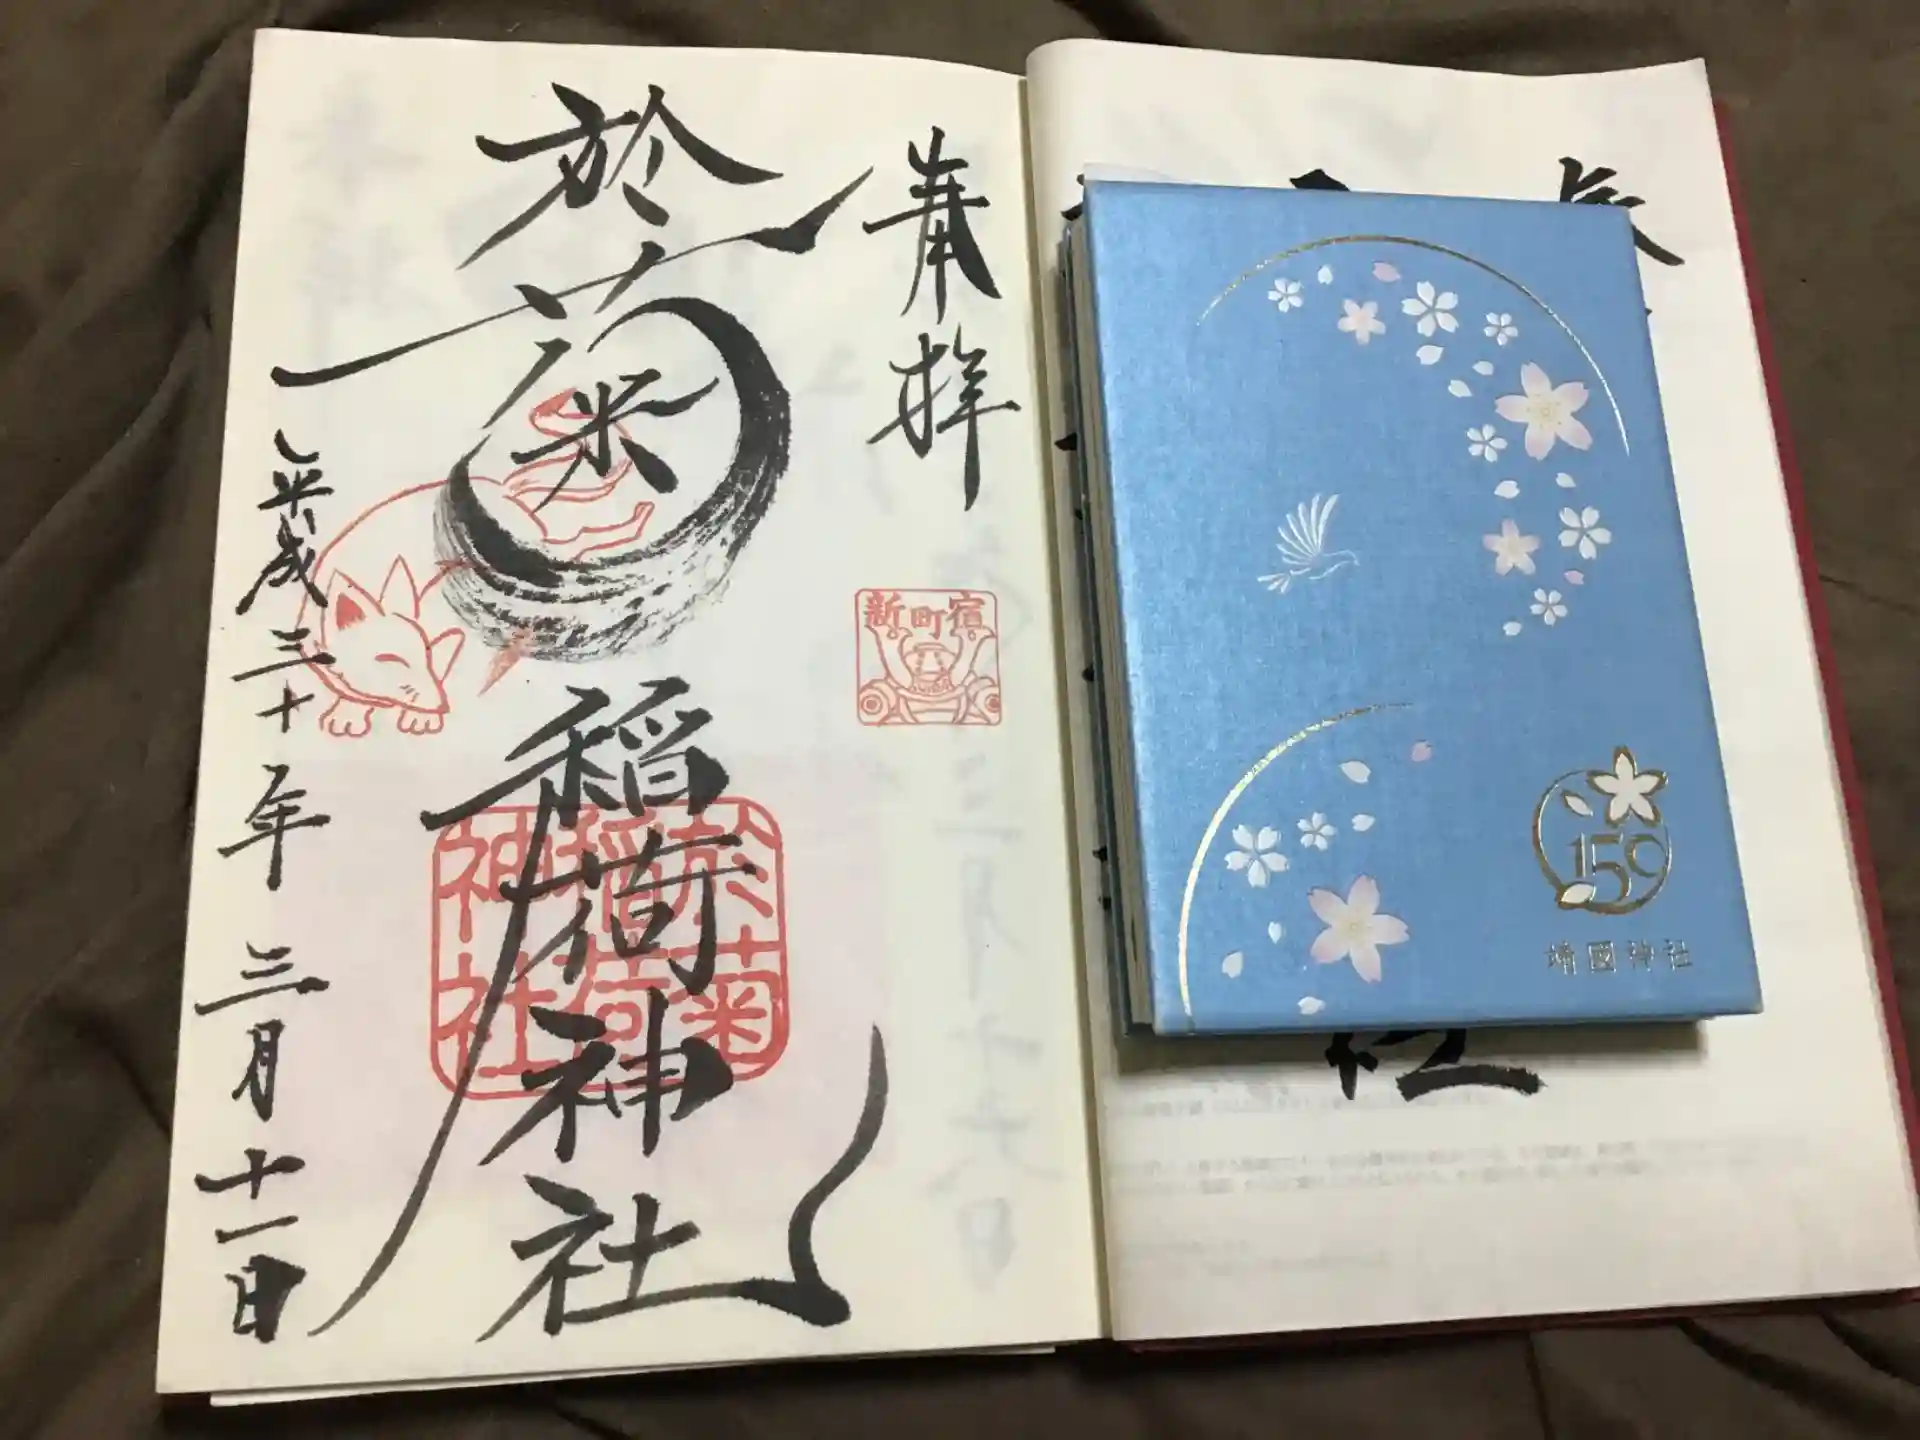 奉拝
新町宿
於菊
稲荷神社
於菊
稲荷
神社
平成三十年三月十一日
150
靖國神社
社